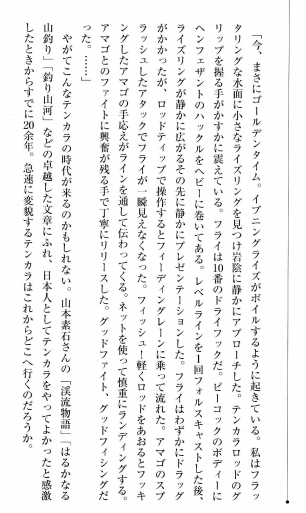 「今、まさにゴールデンタイム。イブニングライズがボイルするように起きている。私はフラッ
タリングな水面に小さなライズリングを見つけ岩陰に静かにアプローチした。テンカラロッドのグ
リップを握る手がかすかに震えている。フライは10番のドライフックだ。ピーコックのボディーに
ヘンフェザントのハックルをヘビーに巻いてある。レベルラインを1回フォルスキャストした後、
ライズリングが静かに広がるその先に静かにプレゼンテーションした。フライはわずかにドラッグ
がかかったが、ロッドティップで操作するとフィーディングレーンに乗って流れた。アマゴのスプ
ラッシュしたアタックでフライが一瞬見えなくなった。フィッシュ！軽くロッドをあおるとフッキ
ングしたアマゴの手応えがラインを通して伝わってくる。ネットを使って慎重にランディングする。
アマゴとのファイトに興奮が残る手で丁寧にリリースした。グッドファイト、グッドフィシングだ
った。……」
やがてこんなテンカラの時代が来るのかもしれない。山本素石さんの「渓流物語」「はるかなる
山釣り」「釣り山河」などの卓越した文章にふれ、日本人としてテンカラをやってよかったと感激
したときからすでに20余年。急速に変貌するテンカラはこれからどこへ行くのだろうか。